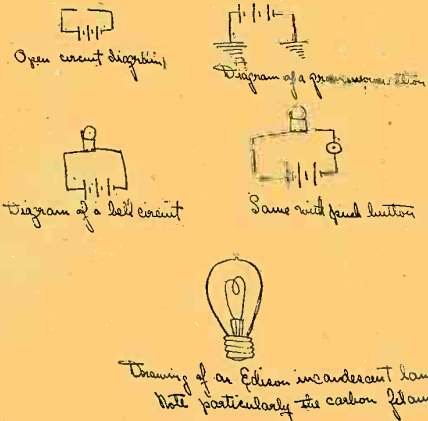 Open circuit diagram
Diagram of a
Diagram of a bell circuit
Same with push button
Drawing of an Edison incandescent lam
Note particularly the carbon filam